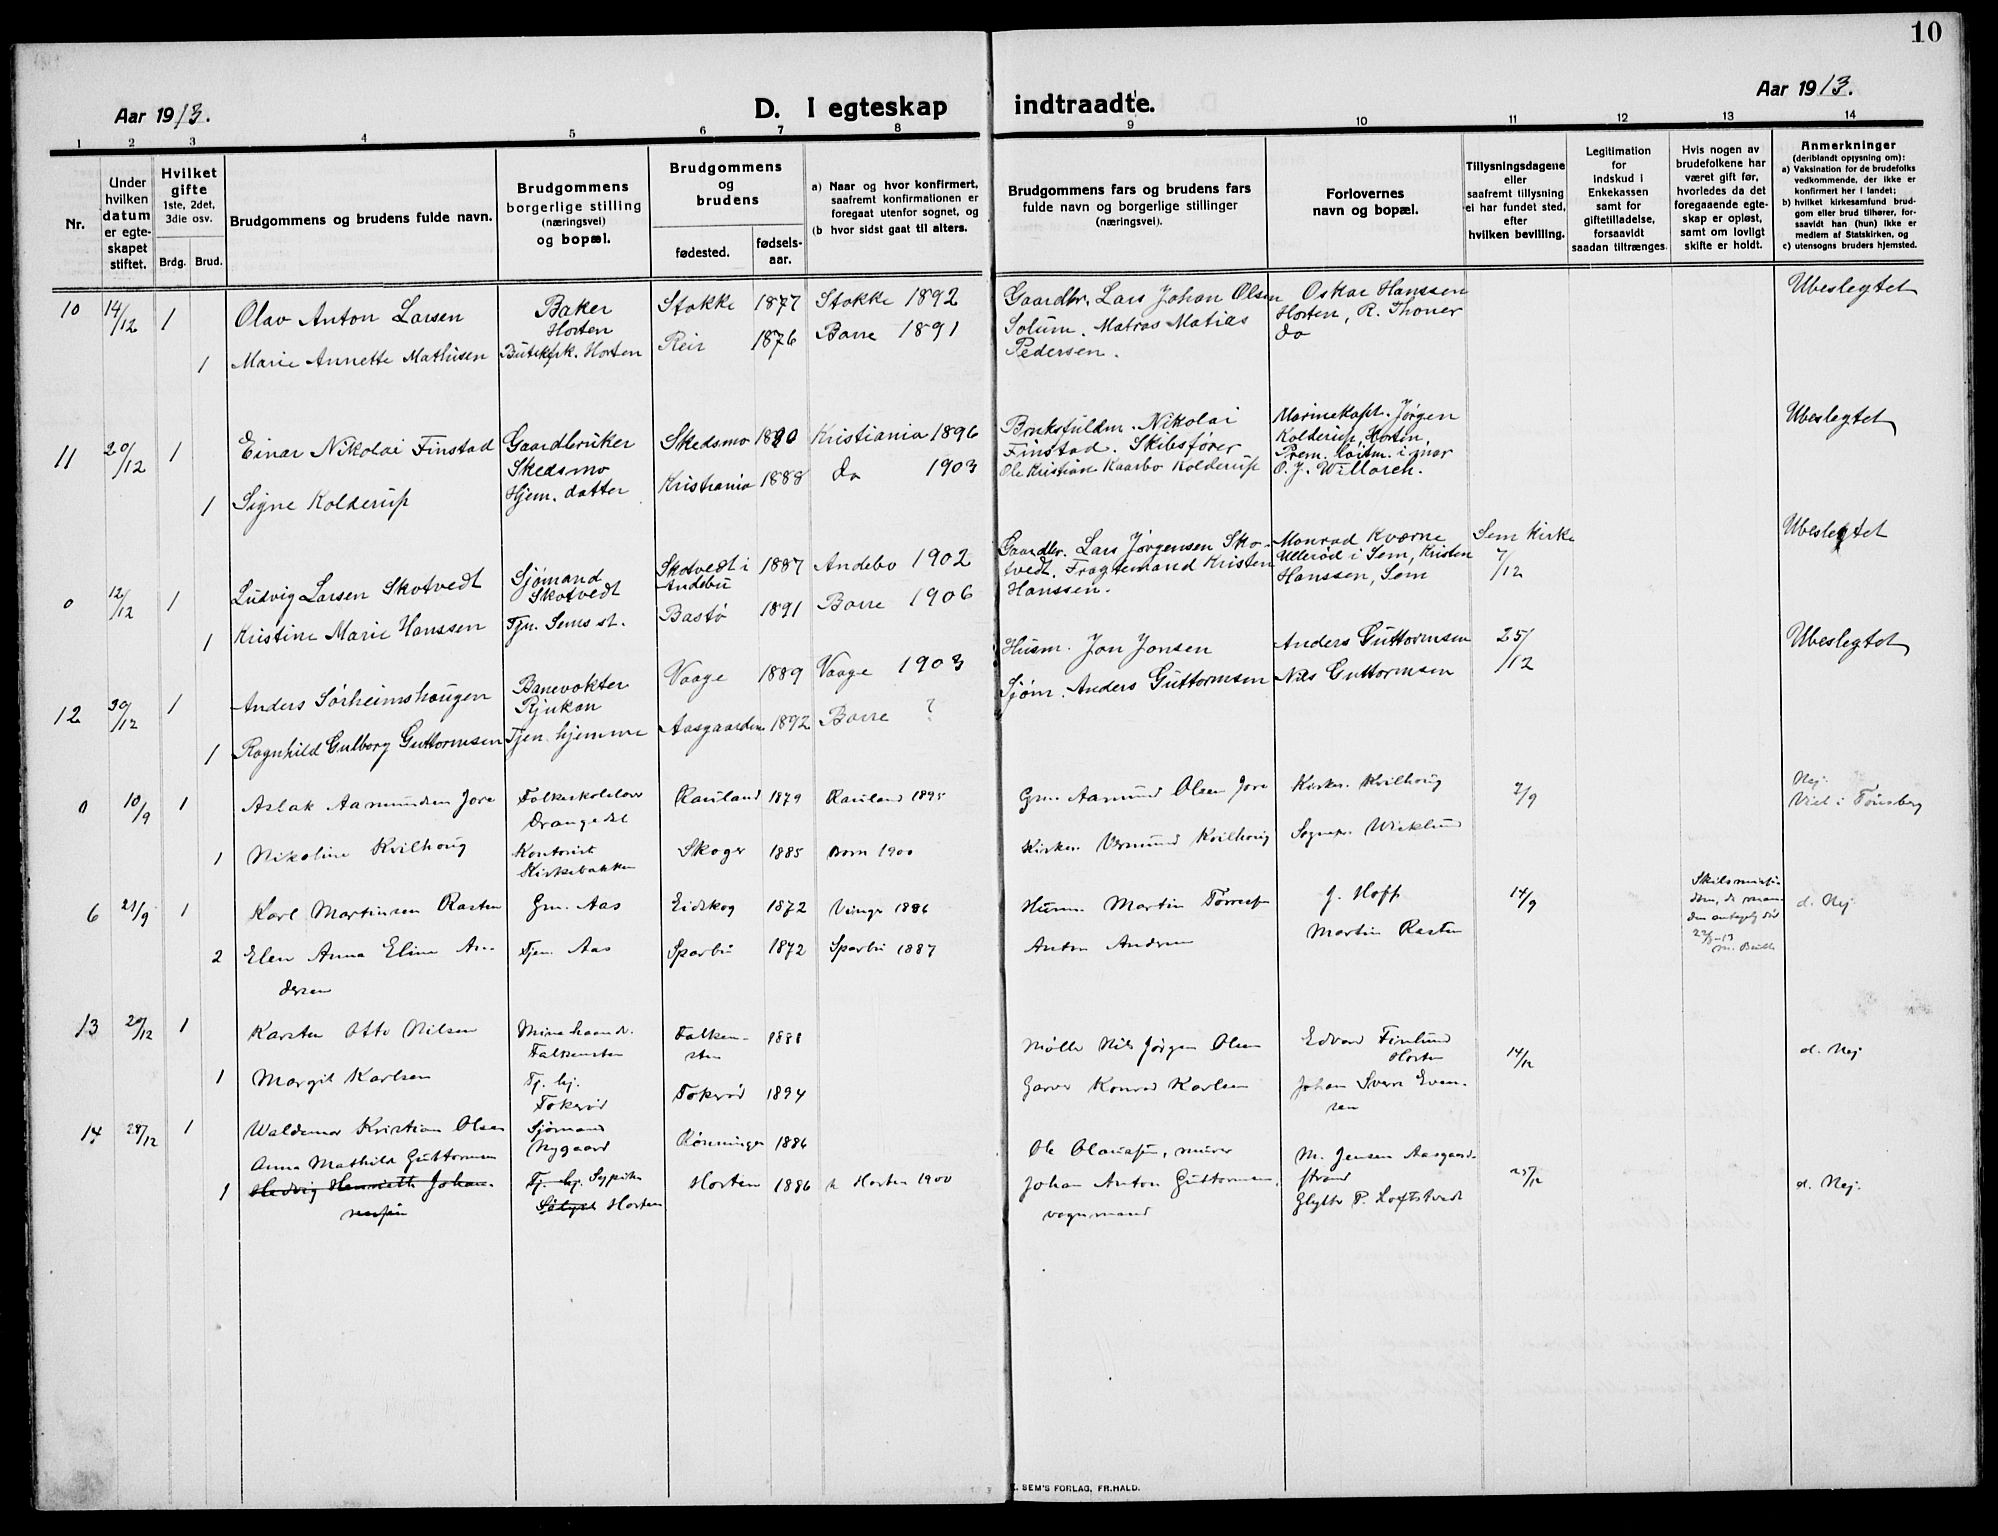 10
Aar 1913.
D. I egteskap indtraadte.
Aar 1913.
1 2 3 4 5 6 7 8 9 10 11 12 13 14
Nr.
Under
hvilken
datum
er egte-
skapet
stiftet.
Hvilket
gifte
1ste, 2det,
3die osv.
Brdg. Brud.
Brudgommens og brudens fulde navn.
Brudgommens
borgerlige stilling
(næringsvei)
og bopæl.
Brudgommens
og
brudens
fødested.
fødsels-
aar.
a) Naar og hvor konfirmert,
saafremt konfirmationen er
foregaat utenfor sognet, og
(b hvor sidst gaat til alters.
Brudgommens fars og brudens fars
fulde navn og borgerlige stillinger
(næringsvei).
Forlovernes
navn og bopæl.
Tillysningsdagene
eller
saafremt tillysning
ei har fundet sted,
efter
hvilken bevilling.
Legitimation
for
indskud i
Enkekassen
samt for
giftetilladelse,
forsaavidt
saadan tiltrænges.
Hvis nogen av
brudefolkene har
været gift før,
hvorledes da det
foregaaende egte-
skap er opløst,
samt om lovligt
skifte er holdt.
Anmerkninger
(deriblandt opjysning om):
a) Vaksination for de brudefolks
vedkommende, der ikke er
konfirmert her i landet;
b) hvilket kirkesamfund brud-
gom eller brud tilhører, for-
saavidt han (hun) ikke er
medlem af Statskirken, og
c) utensogns bruders hjemsted.
10 14/12 1 Olav Anton Larsen
Baker
Horten
Stokke 1877 Stokke 1892
Gaardbr. Lars Johan Olsen
Solum. Matros Matias
Pedersen.
Oskar Hanssen
Horten, R. Thoner
do
Ubeslegtet
1 Marie Annette Mathisen Butikfrk. Horten Reir 1876 Borre 1891
11 20/12 1 Einar Nikolai Finstad
Gaardbruker
Skedsmo
Skedsmo 1880 Kristiania 1896
Bruksfuldm. Nikolai
Finstad. Skibsfører
Ole Kristian Kaarbo Kolderup
Marinekapt. Jørgen
Kolderup, Horten,
Prem. löitn. i mar
O. J. Willoch.
Ubeslegtet
1 Signe Kolderup Hjem. datter Kristiania 1888 do 1903
0 12/12 1 Ludvig Larsen Skotvedt
Sjømand
Skotvedt
Skotvedt i
Andebu
1887 Andebo 1902
Gaardbr. Lars Jørgensen Sko-
tvedt. Fragtemand Kristen
Hanssen.
Monrad Kværne
Ullerød i Sem, Kristen
Hanssen, Sem
Sem Kirke
7/12
Ubeslegtet
1 Kristine Marie Hanssen Tjn. Sems st. Bastø 1891 Borre 1906
12 30/12 1 Anders Sørheimshaugen
Banevokter
Rjukan
Vaage 1889 Vaage 1903
Husm. Jon Jonsen
Sjøm. Anders Guttormsen
Anders Guttormsen
Nils Guttormsen
25/12
Ubeslegtet
1 Ragnhild Gulborg Guttormsen Tjen. hjemme Aasgaarden 1892 Borre ?
0 10/9 1 Aslak Aamundsen Jore
Folkeskolelær
Drangedal
Rauland 1879 Rauland 1895
Grn. Aamund Olsen Jore Kirkes. Kvilhaug 7/9
Nej.
Viet i Tønsberg
1 Nikoline Kvilhaug
Kontorist
Kirkebakken
Skoger 1885 Borre 1900
Kirkes. Vermund Kvilhaug Sognepr. Wicklund
6 21/9 1 Karl Martinsen Rasten Grn. Aas Eidskog 1872 Vinger 1886
Husm. Martin
J. Hoff
Martin Rasten
14/9
d. Nej
2 Elen Anna Eline An-
dersen
Tjen. Aas Sparbu 1872 Sparbu 1887
Anton Andersen
13 20/12 1 Karsten Otto Nilsen
Minehaandv.
Falkensten
Falken-
sten
1888
Mølle Nils Jørgen Olsen
Edvard Finlund
Horten
14/12 d. Nej
1 Margit Karlsen
Tj. hj.
Tokerød
Tokerød 1894
Garver Konrad Karlsen
Johan Sverre Even-
sen
14 28/12 1 Waldemar Kristian Olsen
Sjømand
Nygaard
Rønningen 1886
Ole Olausen, murer
M. Jensen Aasgaard-
strand
Anna Mathilde Guttormsen
1 Hedvig Henriette Johan-
nesen
Tj. hj. Sypike
Horten
Horten 1886 Horten 1900
Johan Anton Guttormsen,
vognmand
P. Loftstvedt
25/12 d. Nej.
E. SEM'S FORLAG, FR.HALD.